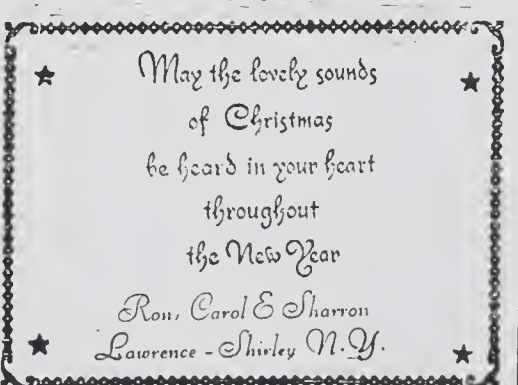 May the lovely sounds
of Christmas
be heard in your heart
throughout
the New Year
Ron, Carol & Sharron
Lawrence - Shirley N.Y.